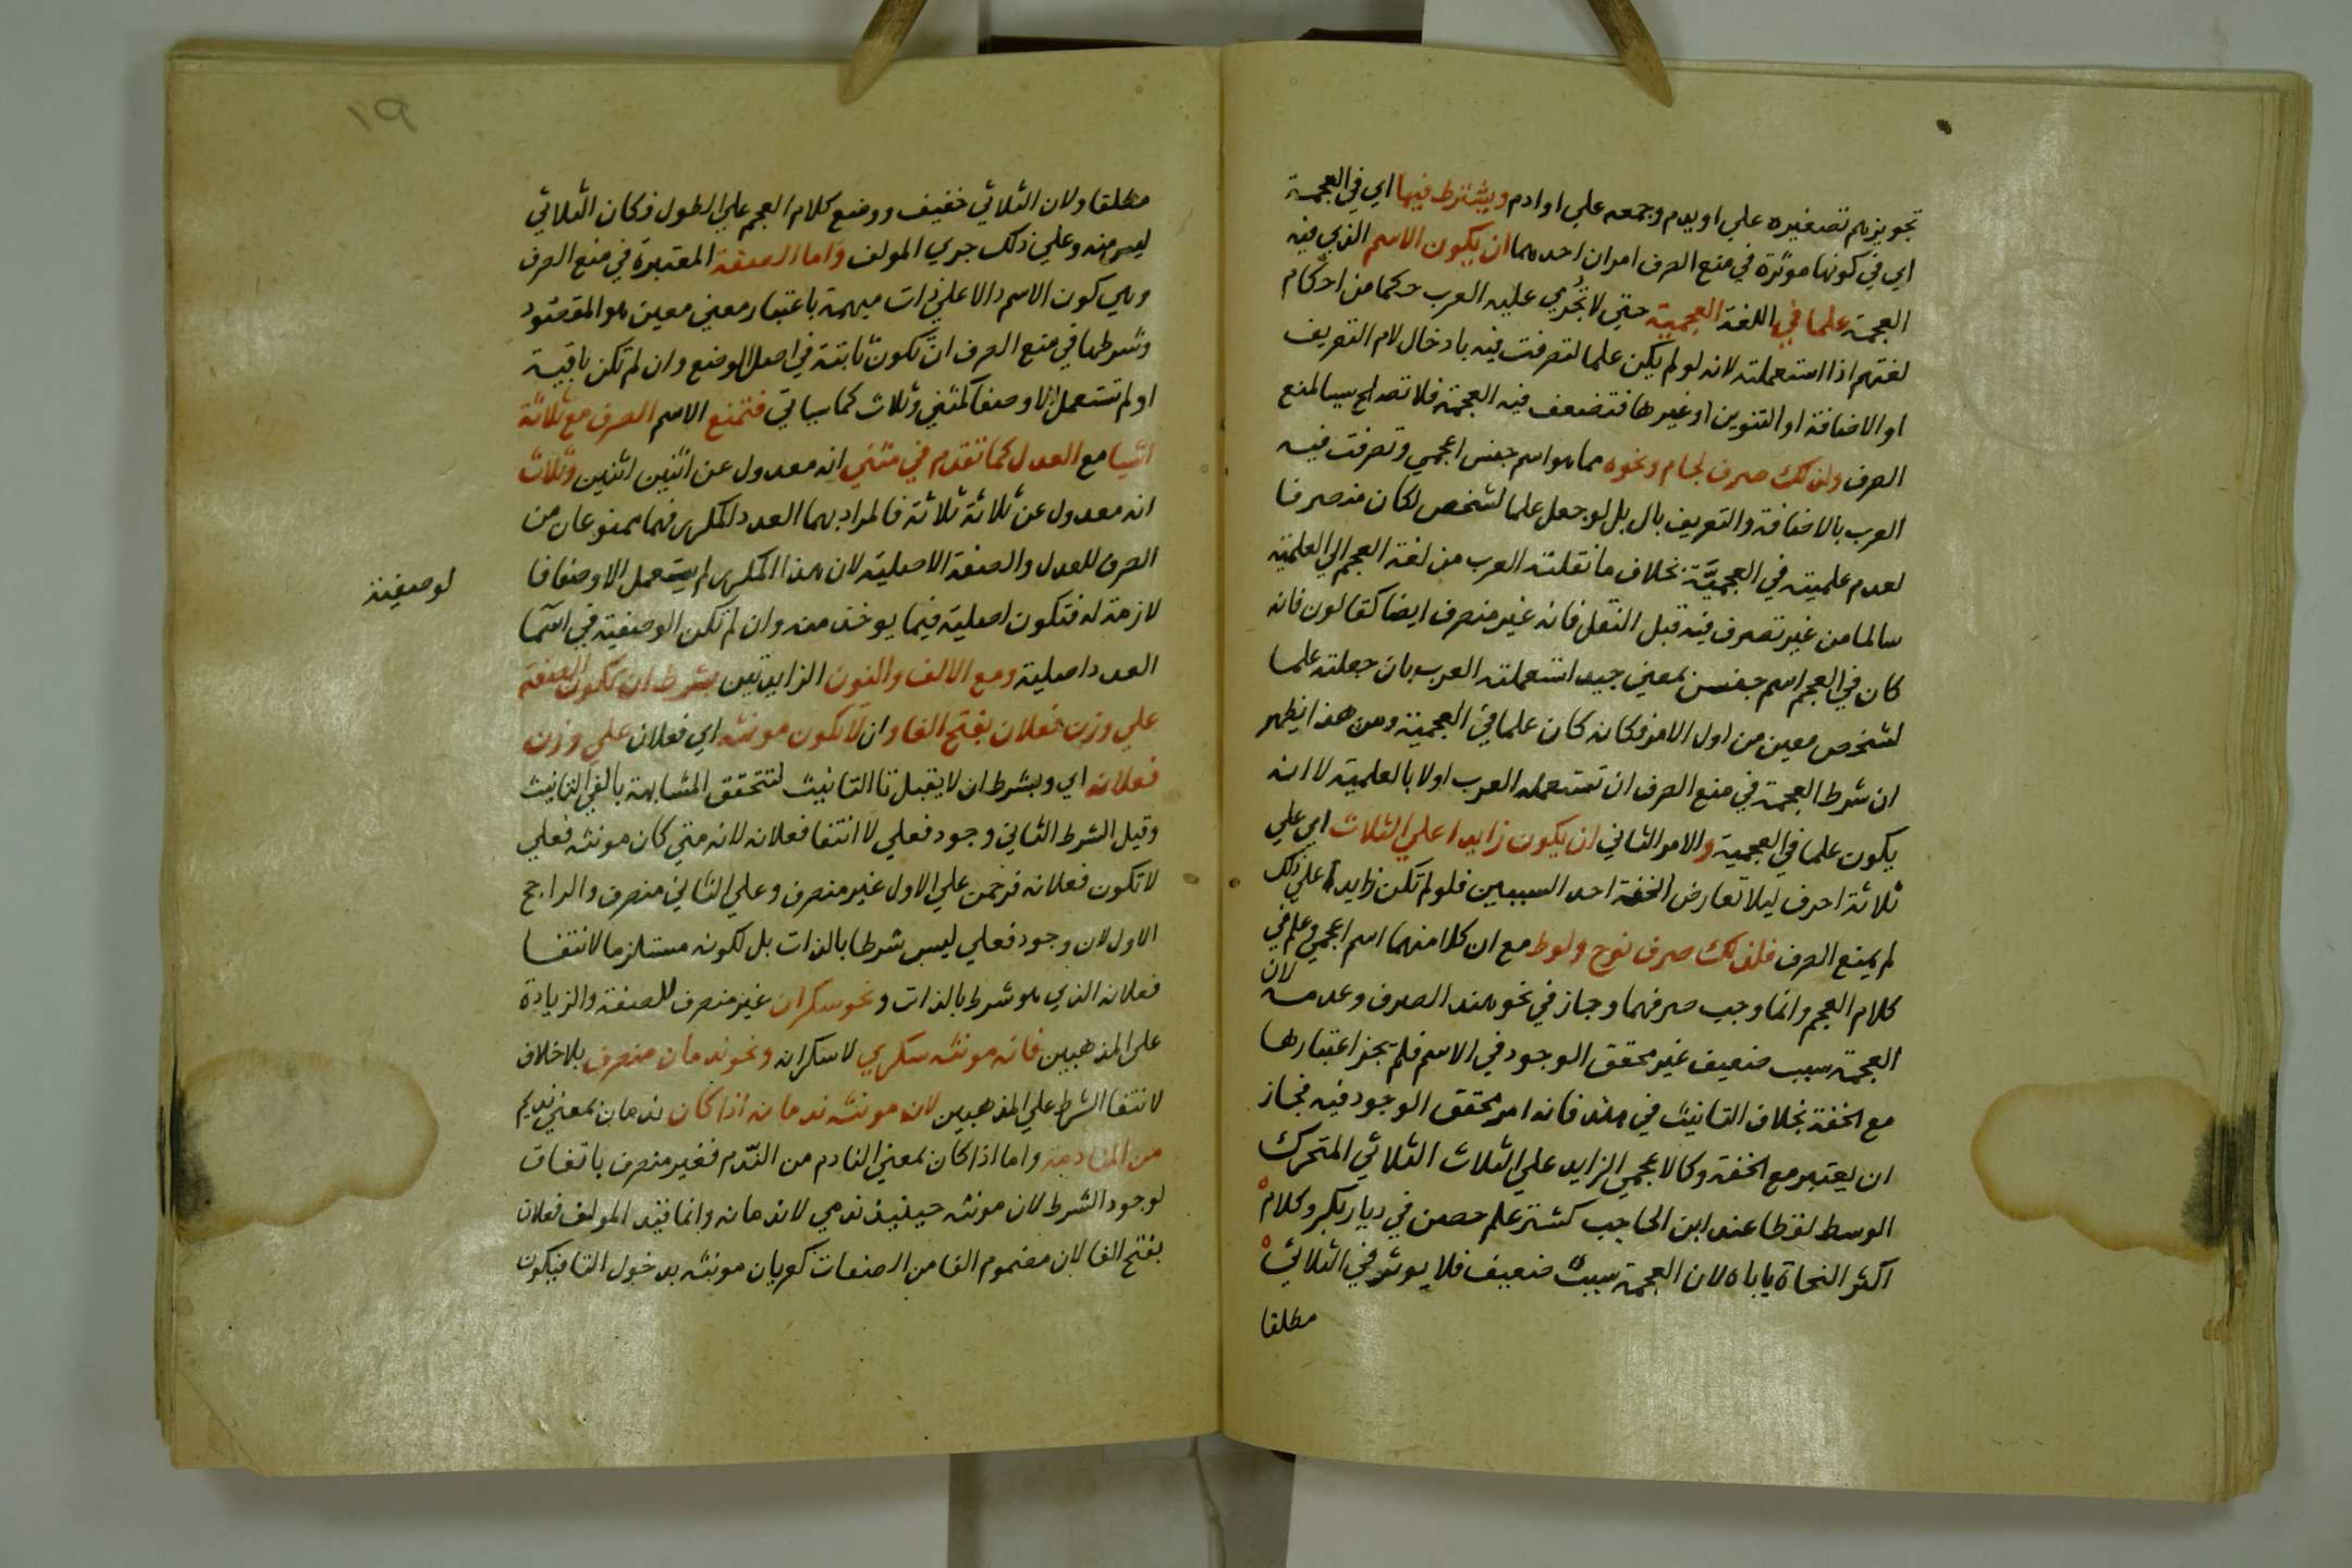 تجويزهم تصغيره علي اويدم وجمعه علي اوادم ويشترط فيها اي في العجمة
اي في كونها موثرة في منع الصرف امران احدهما ان يكون الاسم الذي فيه
العجمة علما في اللغة العجمية حتي لا تجري عليه العرب حكما من احكام
لغتهم اذا استعملته لانه لو لم يكن علما لتصرفت فيه بادخال لام التعريف
او الاضافة او التنوين او غيرها فتضعف فيه العجمة فلا تصلح سببا لمنع
الصرف ولذلك صرف لجام ونحوه مما هو اسم جنس اعجمي وتصرفت فيه
العرب بالاضافة والتعريف بال بل لو جعل علما لشخص لكان منصرفا
لعدم علميته في العجميَّة بخلاف ما نقلته العرب من لغة العجم الي العلمية
سالما من غير تصرف فيه قبل النقل فانه غير منصرف ايضا كقالون فانه
كان في العجم اسم جنس بمعني جيد استعملته العرب بان جعلته علما
لشخص معين من اول الامر فكانه كان علما في العجمية ومن هذا يظهر
ان شرط العجمة في منع الصرف ان تستعمله العرب اولا بالعلمية لا انه
يكون علما في العجمية والامر الثاني ان يكون زايدا علي الثلاث اي علي
ثلاثة احرف ليلا تعارض الخفة احد السببين فلو لم تكن زايدا علي ذلك
لم يمنع الصرف فلذلك صرف نوح ولوط مع ان كلا منهما اسم اعجمي وعلم في
كلام العجم وانما وجب صرفهما وجاز في نحو هند الصرف وعدمه لان
العجمة سبب ضعيف غير محقق الوجود في الاسم فلم يجز اعتبارها
مع الخفة بخلاف التانيث في هند فانه امر محقق الوجود فيه فجاز
ان يعتبر مع الخفة وكالاعجمي الزايد علي الثلاث الثلاثي المتحرك
الوسط لفظا عند ابن الحاجب كشتر علم حصن في ديار بكر وكلام
اكثر النحاة ياباه لان العجمة سبب ضعيف فلا يوثر في الثلاثي
مطلقا
١٩
مطلقا ولان الثلاثي خفيف ووضع كلام العجم علي الطول فكان الثلاثي
ليس منه وعلي ذلك جري المولف واما الصفة المعتبرة في منع الصرف
وهي كون الاسم دالا علي ذات مبهمة باعتبار معني معين هو المقصود
وشرطها في منع الصرف ان تكون ثابتة في اصل الوضع وان لم تكن باقية
او لم تستعمل الا وصفا كمثني وثلاث كما سياتي فتمنع الاسم الصرف مع ثلاثة
اشيا مع العدل كما تقدم في مثني انه معدول عن اثنين اثنين وثلاث
انه معدول عن ثلاثة ثلاثة فالمراد بهما العدد المكرر فهما ممنوعان من
الصرف للعدل والصفة الاصلية لان هذا المكرر لم يستعمل الا وصفا فا
لوصفية
لازمة له فتكون اصلية فيما يوخذ منه وان لم تكن الوصفية في اسما
العدد اصلية ومع الالف والنون الزايدتين بشرط ان تكون الصفة
علي وزن فعلان بفتح الفا وان لا يكون مونثه اي فعلان علي وزن
فعلانه اي وبشرط ان لا يقبل تا التانيث لتتحقق المشابهة بالفي التانيث
وقيل الشرط الثاني وجود فعلي لا انتفا فعلانه لانه متي كان مونثه فعلي
لا تكون فعلانه فرحمن علي الاول غير منصرف وعلي الثاني منصرف والراجح
الاول لان وجود فعلي ليس شرطا بالذات بل لكونه مستلزما لانتفا
فعلانه الذي هو شرط بالذات ونحو سكران غير منصرف للصفة والزيادة
علي المذهبين فانه مونثه سكري لا سكرانه ونحو ندمان منصرف بلا خلاف
لانتفا الشرط علي المذهبين لان مونثه ندمانه اذا كان ندمان بمعني نديم
من المنادمة واما اذا كان بمعني النادم من النَّدم فغير منصرف باتفاق
لوجود الشرط لان مونثه حينيذ ندمي لا ندمانه وانما قيد المولف فعلان
بفتح الفا لان مضموم الفا من الصفات كعريان مونثه بدخول التا فيكون